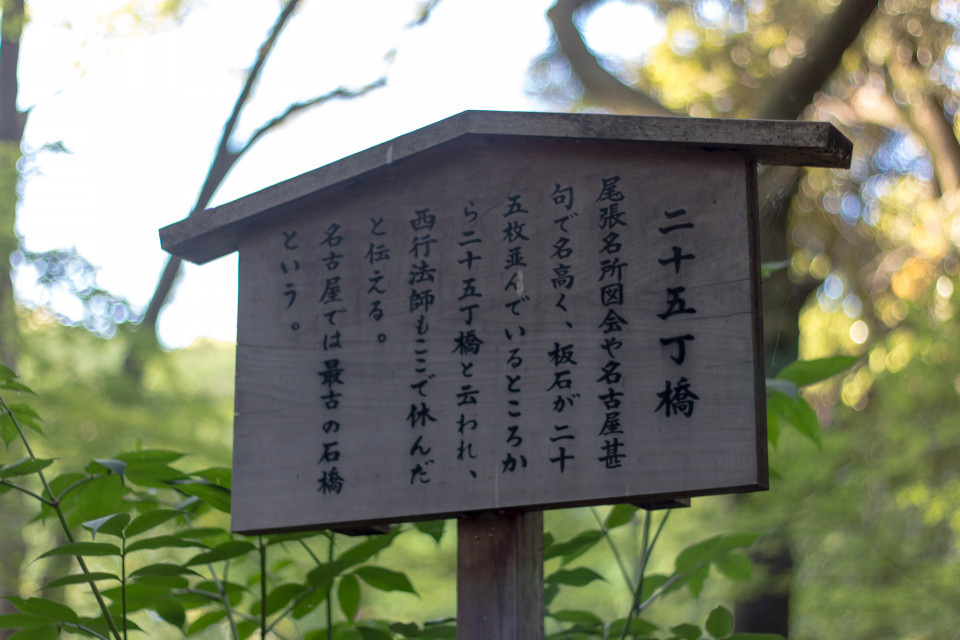 二十五丁橋
尾張名所図会や名古屋甚
句で名高く、板石が二十
五枚並んでいるところか
ら二十五丁橋と云われ、
西行法師もここで休んだ
と伝える。
名古屋では最古の石橋
という。